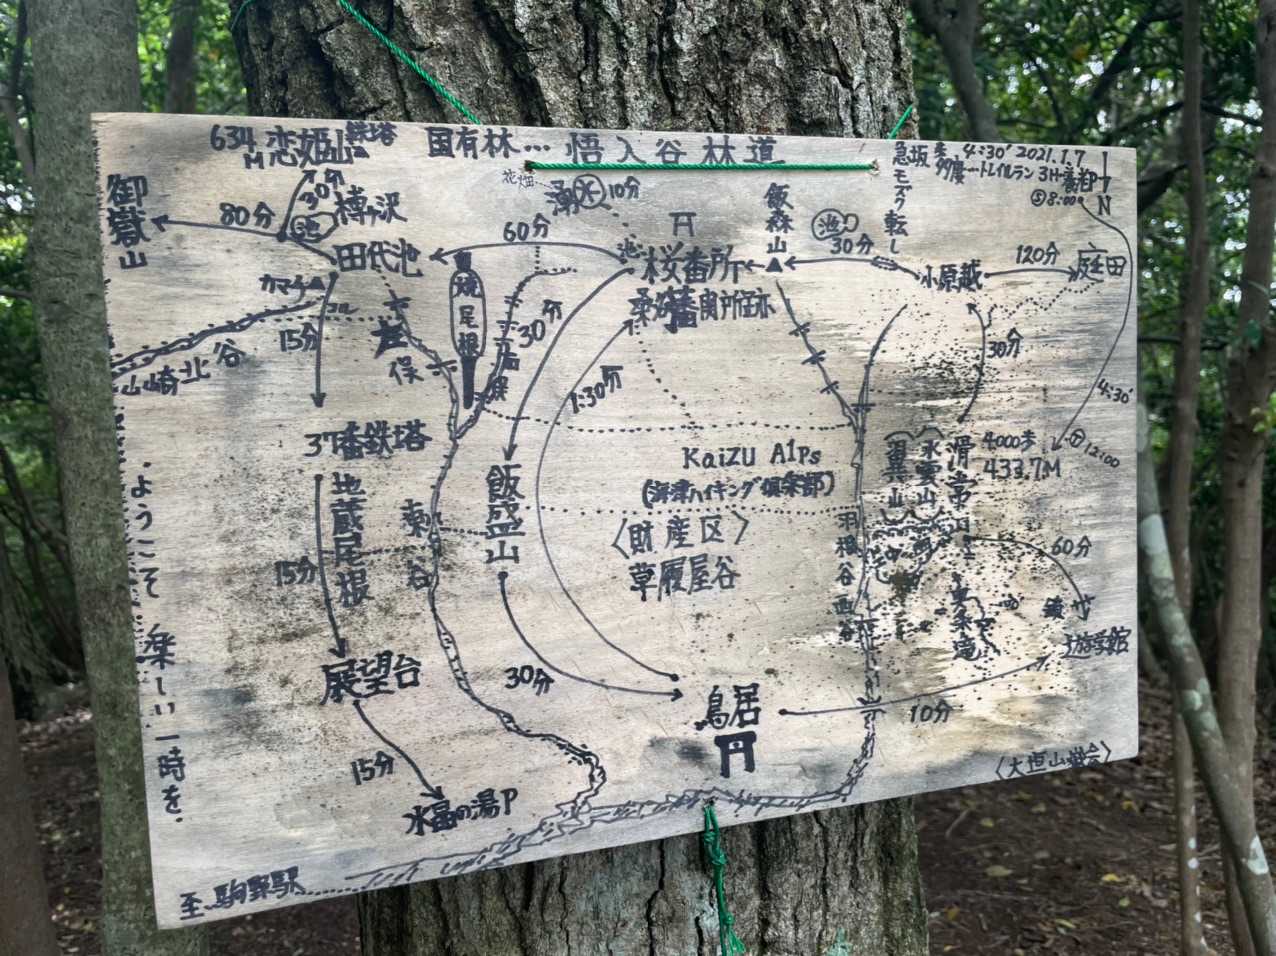 634M 恋姫山 鉄塔
国有林… 悟入谷林道
急坂
4:30' 2021.1.7
多度ートレイルラン
⑤8:00
N
花畑
水 10分
御嶽山
80分
30分
樽ヶ沢
池
田代池
60分
池
桜番所
飯森山
池
30分
モミヌク転し
小原越
120分
庭田
15分
山崎北谷
30分
1:30分
30分
4:30'
㋣12:00
37番鉄塔
飯盛山
KaiZU Alps
(海津ハイキング倶楽部)
〈財産区〉
草履屋谷
4000歩
433.7M
水雲山
地蔵尾根
東谷
羽根谷
15分
60分
展望台
30分
鳥居
10分
15分
水晶の湯P
ようこそ 楽しい一時を
〈大垣山岳会〉
至 駒野駅